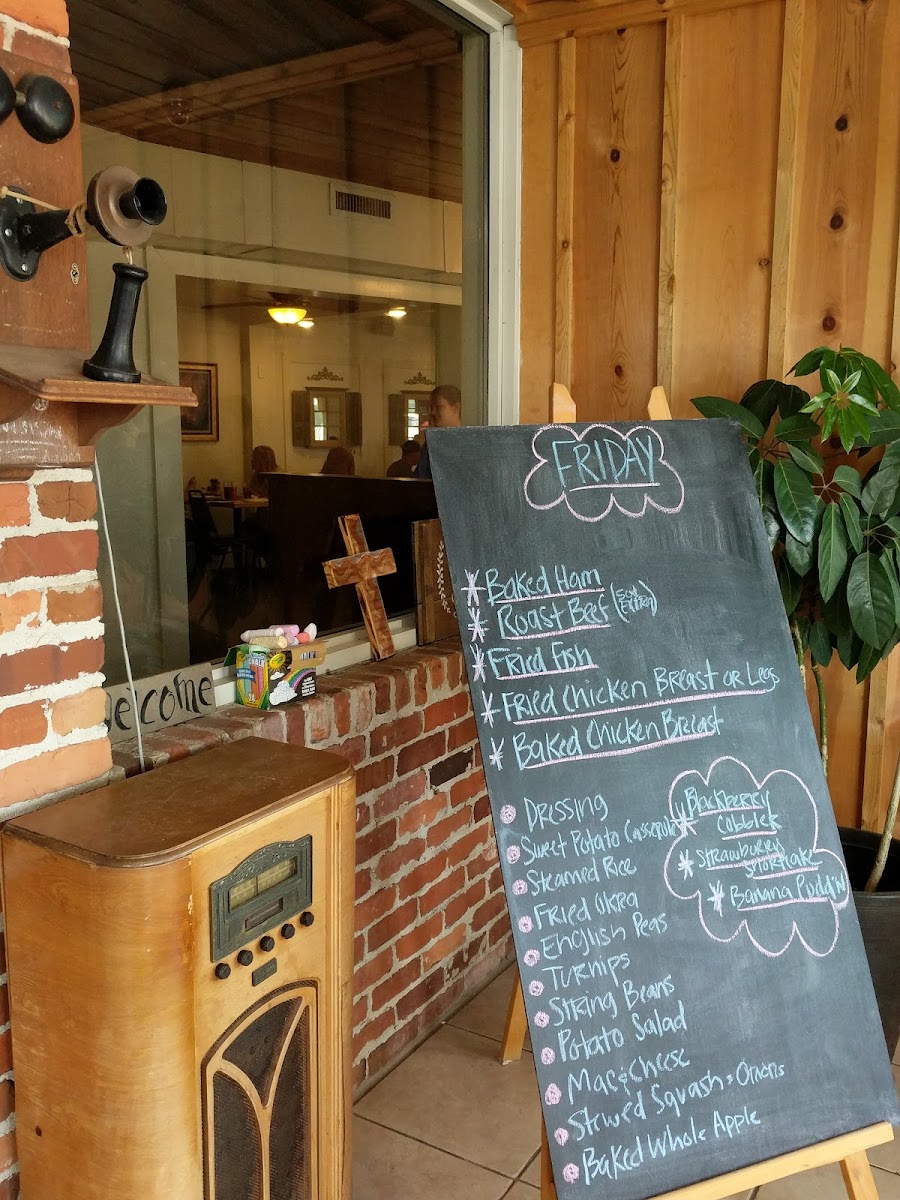 FRIDAY
Baked Ham
Roast Beef
Fried Fish
Fried Chicken Breast or Legs
Baked Chicken Breast
Dressing
Sweet Potato Casserole
Steamed Rice
Fried Okra
English Peas
Turnips
String Beans
Potato Salad
Mac & Cheese
Stewed Squash & Onions
Baked Whole Apple
Blackberry
Cobbler
Strawberry
Shortcake
Banana Pudd'n
welcome